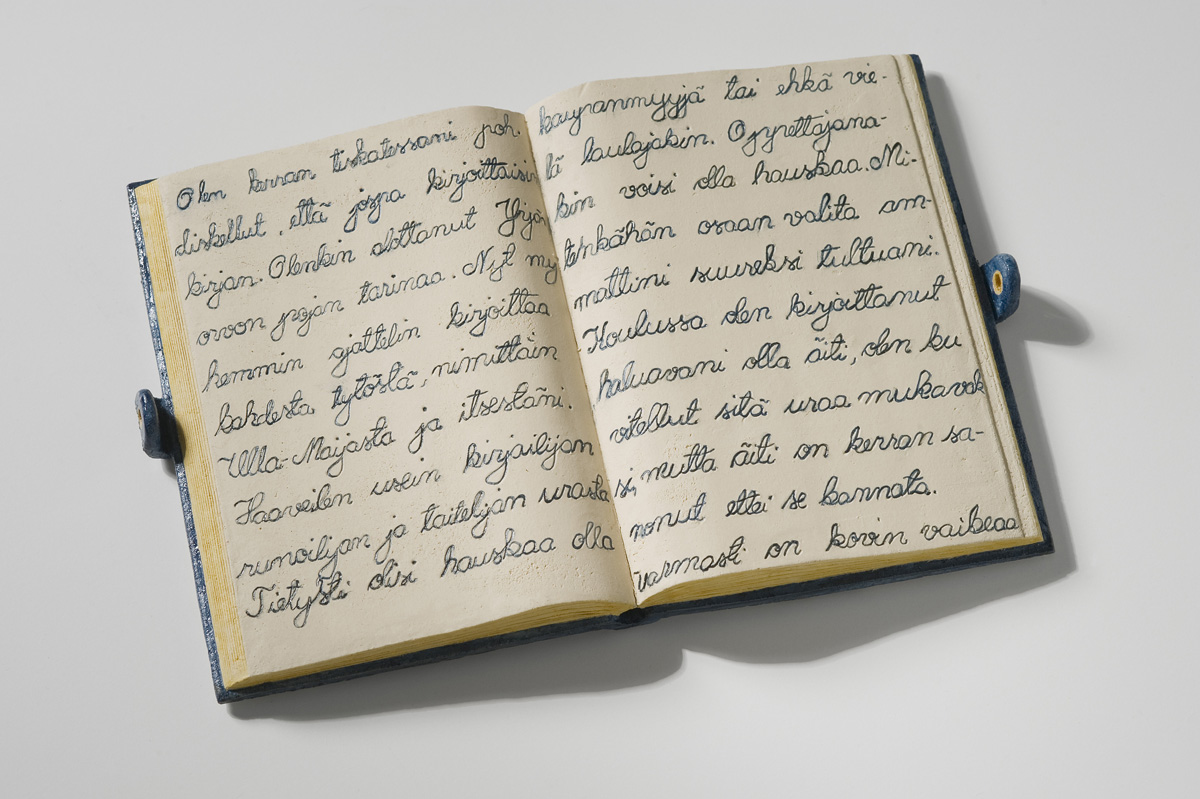 Olen kerran tiskatessani poh-
diskellut, että jospa kirjoittaisin
kirjan. Olenkin aloittanut Yrjön
orvon pojan tarinaa. Nyt myö
hemmin ajattelin kirjoittaa
kahdesta tytöstä, nimittäin
Ulla-Maijasta ja itsestäni.
Haaveilen usein kirjailijan
runoilijan ja taiteilijan urasta
Tietysti olisi hauskaa olla
kaupanmyyjä tai ehkä vie-
lä laulajakin. Opettajana-
kin voisi olla hauskaa. Mi-
tenkähän osaan valita am-
mattini suureksi tultuani.
Koulussa olen kirjoittanut
haluavani olla äiti, olen ku
vitellut sitä uraa mukavak
si, mutta äiti on kerran sa-
nonut ettei se kannata.
Varmasti on kovin vaikeaa